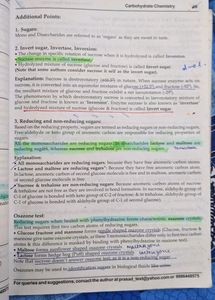 Carbohydrate Chemistry
Additional Points:
1. Sugars:
Mono and Disaccharides are referred to as 'sugars' as they are sweet in taste.
2. Invert sugar, Invertase, Inversion:
• The change in specific rotation of sucrose when it is hydrolyzed is called Inversion.
• Sucrase enzyme is called Invertase.
• Hydrolyzed mixture of sucrose (glucose and fructose) is called Invert sugar.
(Note that some authors consider sucrose it self as the invert sugar).
Explanation: Sucrose is dextrorotatory in nature. When sucrase enzyme acts on
sucrose, it is converted into an equimolar mixture of glucose and fructose
the resultant mixture of glucose and fructose exhibit a net
The phenomenon by which dextrorotatory sucrose is converted to levorotatory mixture of
glucose and fructose is known as 'Inversion'. Enzyme sucrase is also known as 'Invertase'
and hydrolyzed mixture of sucrose (glucose & fructose) is called Invert sugar.
3. Reducing and non-reducing sugars:
Based on the reducing property, sugars are termed as reducing sugars or non-reducing sugars.
Free aldehyde or keto group of anomeric carbons are responsible for reducing properties of
sugars.
All the monosaccharides are reducing sugars. In disaccharides lactose and maltose are
reducing sugars, whereas sucrose and trehalose are non reducing sugars.
Explanation:
• All monosaccharides are reducing sugars because they have free anomeric carbon atoms.
• Lactose and maltose are reducing sugars: Because they have free anomeric carbon atoms.
In lactose, anomeric carbon of second glucose molecule is free and in maltose, anomeric carbon
of second glucose molecule is free.
• Sucrose & trehalose are non-reducing sugars: Because anomeric carbon atoms of sucrose
& trehalose are not free as they are involved in bond formation. In sucrose, aldehyde group of
C-1 of glucose is bonded with keto group of C-2 of fructose. In trehalose, aldehyde group of
C-1 of glucose is bonded with aldehyde group of C-1 of second glucose).
Osazone test:
Reducing sugars when heated with phenylhydrazine forms characteristic osazone crystals.
This test requires first two carbon atoms of reducing sugars.
• Glucose fructose and mannose forms needle shaped osazone crystals
mannose give same osazone crystals, as these 3 monosaccharides differ only in first two carbon
atoms & this difference is masked by binding with phenylhydrazine in osazone test
• Maltose forms sunflower shaped osazone crystals.
• Lactose forms hedge hog (Puff) shaped osazone crystals.
Note that sucrose doesn't give osazone crystals test, as it is a non-reducing sugar.
Osazones may be used to identification sugars in biological fluids like urine.
For queries and suggestions, consult the author at prasad_text@yahoo.com or